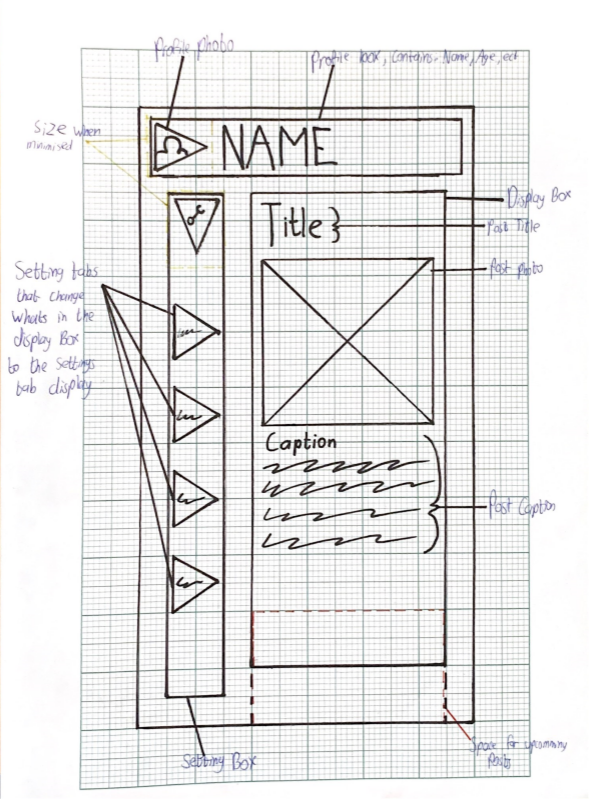 Profile photo
Profile box, Contains- Name, Age, ect
Size when
minimised
NAME
Display Box
Title }
Post Title
Post photo
Setting tabs
that change
whats in the
display Box
to the settings
tab display
Caption
Post Caption
Space for upcomming
Posts
Setting Box